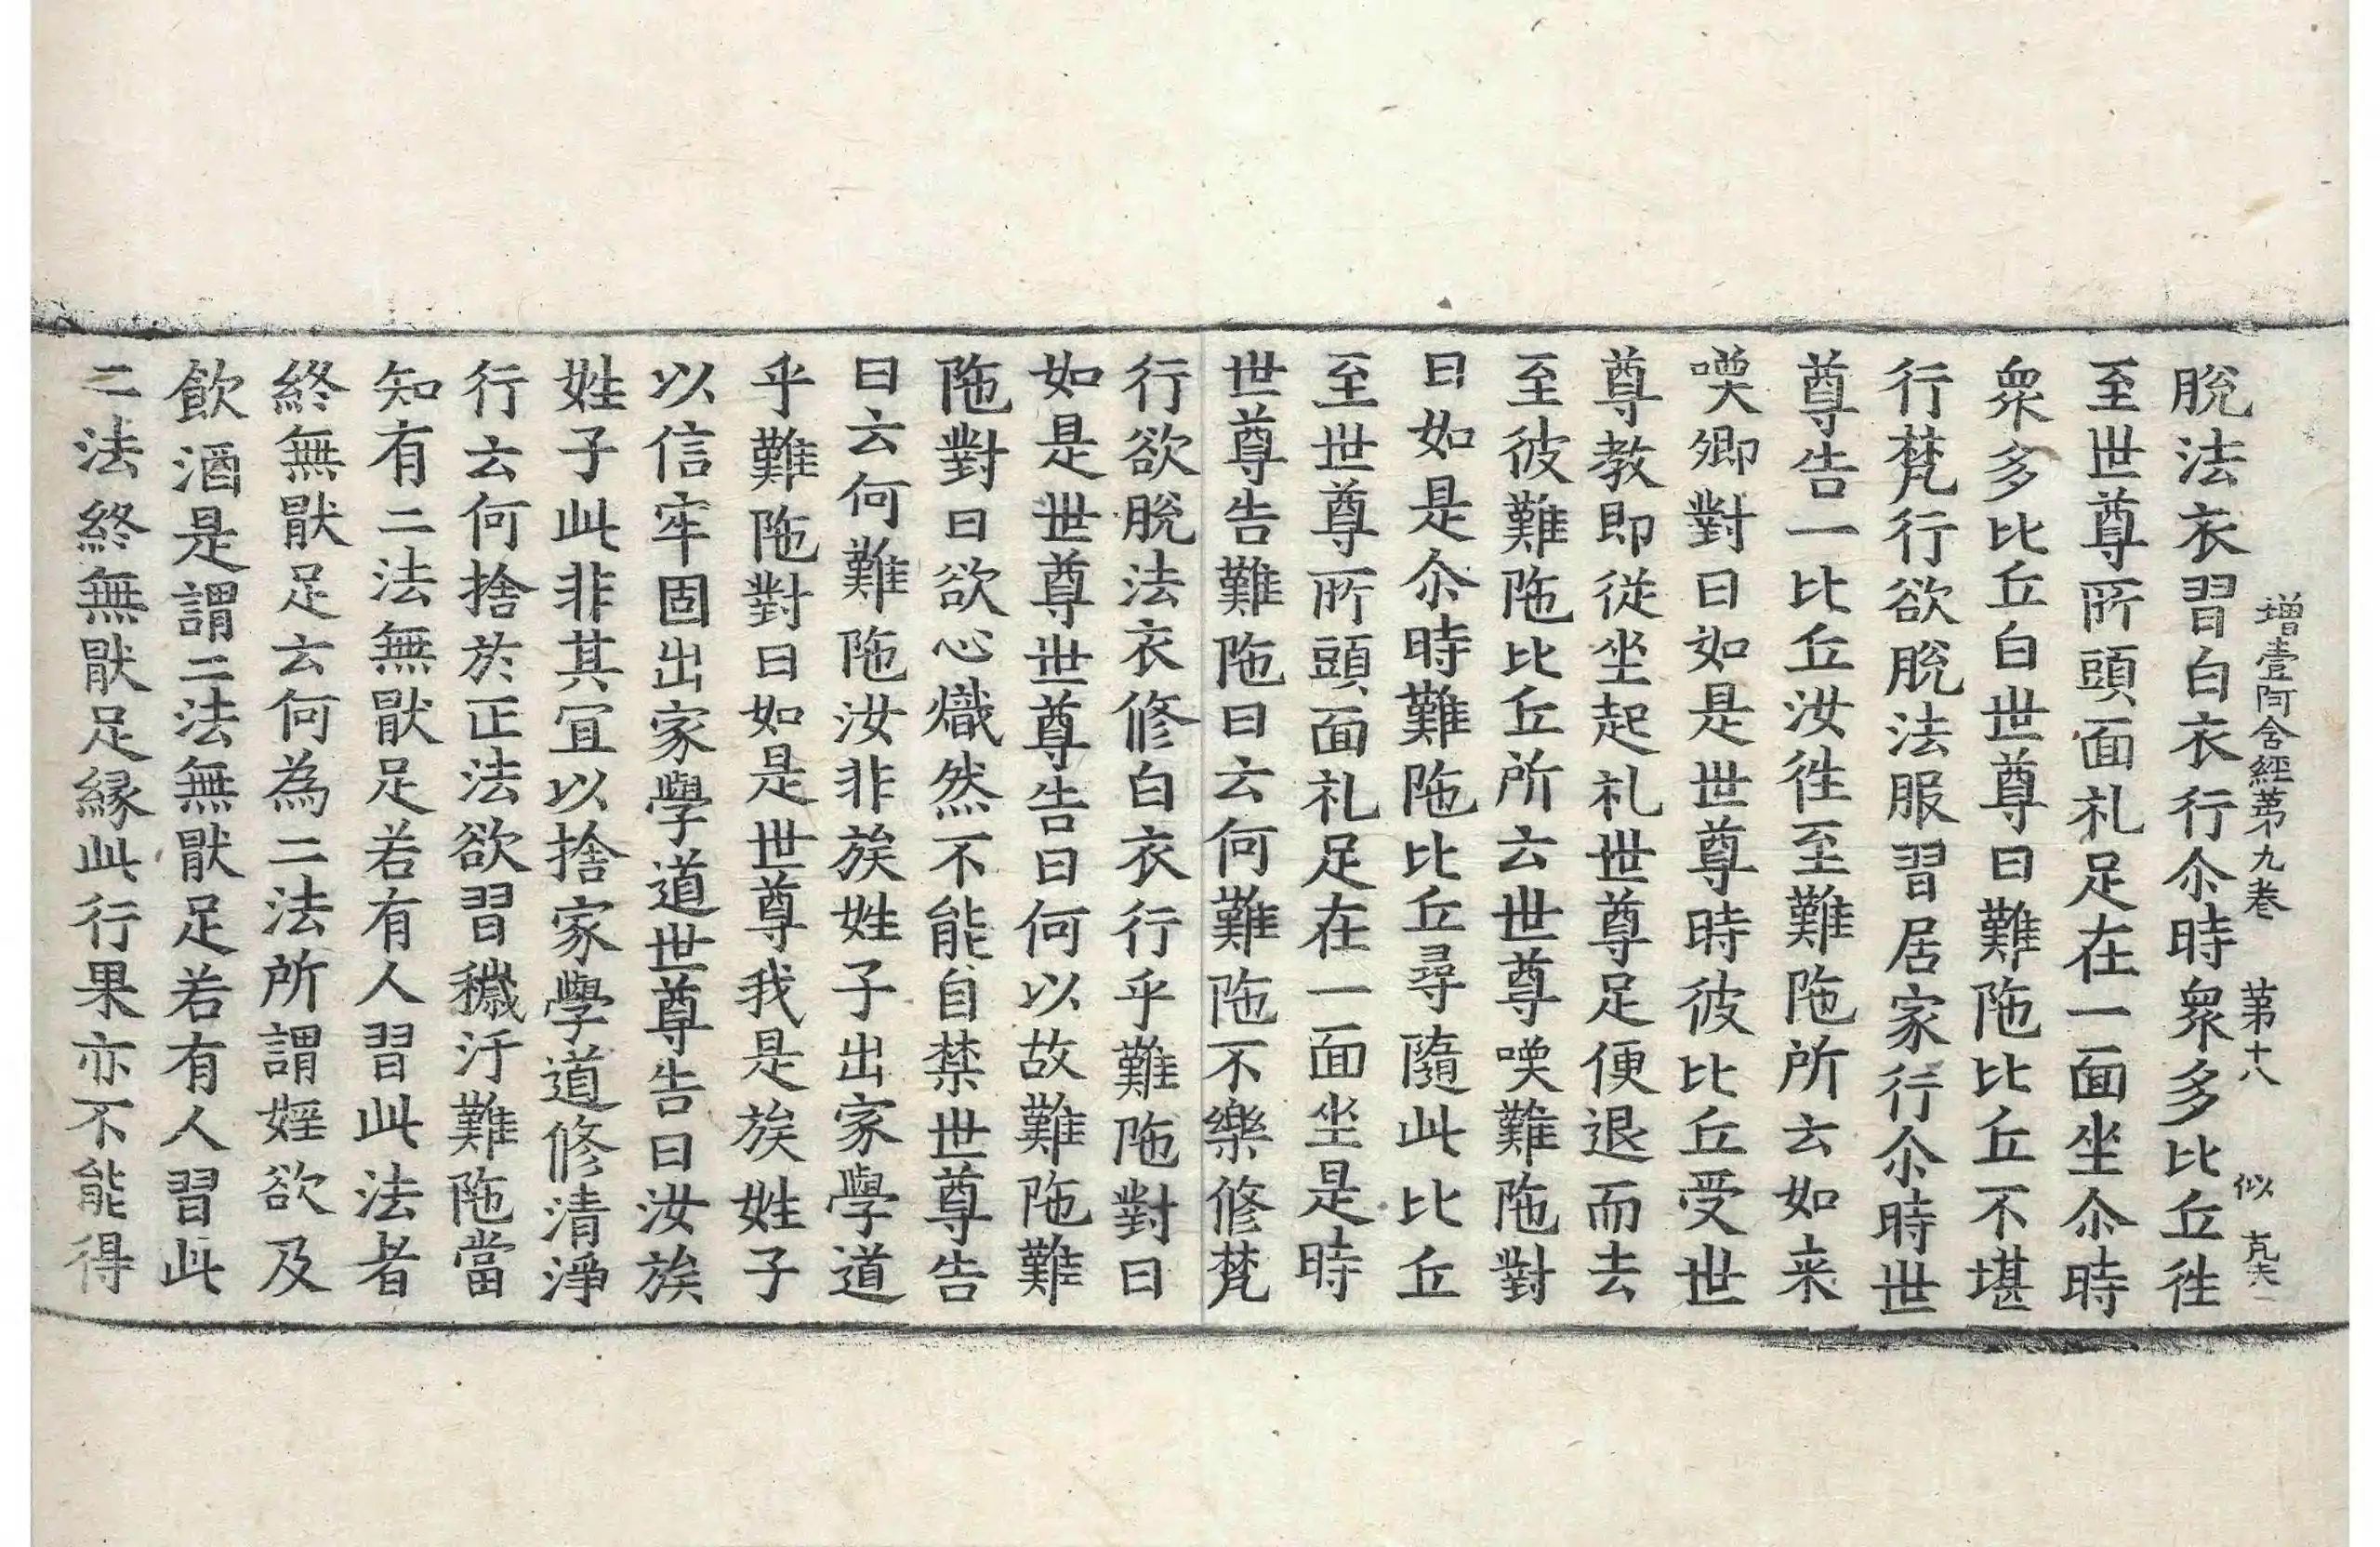 增壹阿含經苐九卷　苐十八　似　克夫
脫法衣習白衣行尒時衆多比丘徃
至世尊所頭面礼足在一面坐尒時
衆多比丘白世尊曰難陁比丘不堪
行梵行欲脫法服習居家行尒時世
尊告一比丘汝徃至難陁所云如来
喚卿對曰如是世尊時彼比丘受世
尊教即従坐起礼世尊足便退而去
至彼難陁比丘所云世尊喚難陁對
曰如是尒時難陁比丘尋隨此比丘
至世尊所頭面礼足在一面坐是時
世尊告難陁曰云何難陁不樂修梵
行欲脫法衣修白衣行乎難陁對曰
如是世尊世尊告曰何以故難陁難
陁對曰欲心熾然不能自禁世尊告
曰云何難陁汝非族姓子出家學道
乎難陁對曰如是世尊我是族姓子
以信牢固出家學道世尊告曰汝族
姓子此非其冝以捨家學道修清淨
行云何捨於正法欲習穢汙難陁當
知有二法無猒足若有人習此法者
終無猒足云何為二法所謂婬欲及
飲酒是謂二法無猒足若有人習此
二法終無猒足縁此行果亦不能得